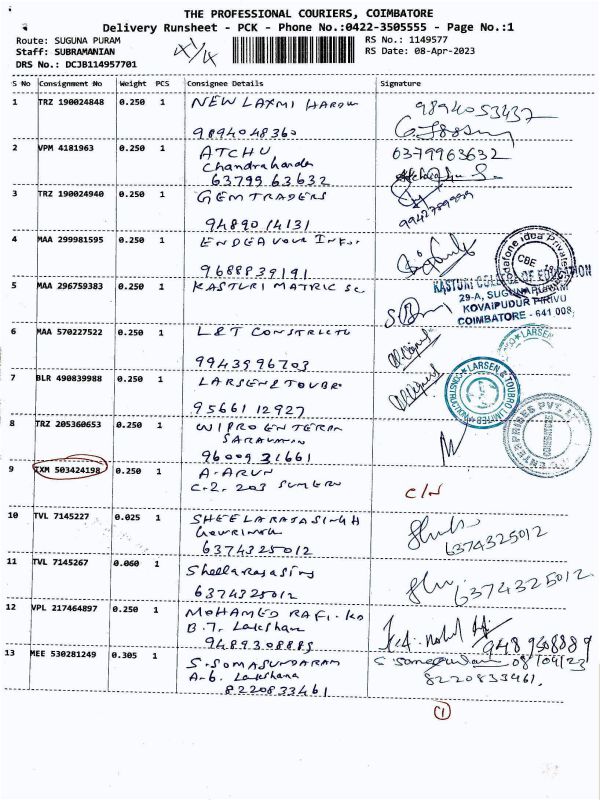 THE PROFESSIONAL COURIERS, COIMBATORE
Delivery Runsheet - PCK - Phone No.:0422-3505555 - Page No.:1
Route: SUGUNA PURAM RS No.: 1149577
Staff: SUBRAMANIAN RS Date: 08-Apr-2023
DRS No.: DCJB114957701
S No Consignment No Weight PCS Consignee Details Signature
1 TRZ 190024848 0.250 1 NEW LAXMI HARDW 9894053437
9894048360
2 VPM 4181963 0.250 1 ATCHU 6379963632
Chandrakanda
63799 63632
3 TRZ 190024940 0.250 1 GEM TRADERS
94890 14131
4 MAA 299981595 0.250 1 ENDEAVOUR INFO
9688839191
5 MAA 296759383 0.250 1 KASTURI MATRIC SC
KASTURI COLLEGE OF EDUCATION
29-A, SUGUNAPURAM
KOVAIPUDUR PIRIVU
COIMBATORE - 641 008
6 MAA 570227522 0.250 1 L&T CONSTRUCTU
9943996703
7 BLR 490839988 0.250 1 LARSEN & TOUBR
95661 12927
LARSEN & TOUBRO LIMITED
8 TRZ 205360653 0.250 1 WIPRO ENTERN
SARAVANAN
96009 31661
ENTERPRISES PVT
9 IXM 503424198 0.250 1 A. ARUN
C.2. 203 SUMERU
C/N
10 TVL 7145227 0.025 1 SHEELARAJASINGH
6374325012 6374325012
11 TVL 7145267 0.060 1 Sheelarajasing
6374325012 6374325012
12 VPL 217464897 0.250 1 MOHAMED RAFI. KO
B.7. Lakshana
9489308889 9489308889
13 MEE 530281249 0.305 1 S. SOMASUNDARAM 08/04/23
A-6. Lakshana 8220833461
8220833461
1